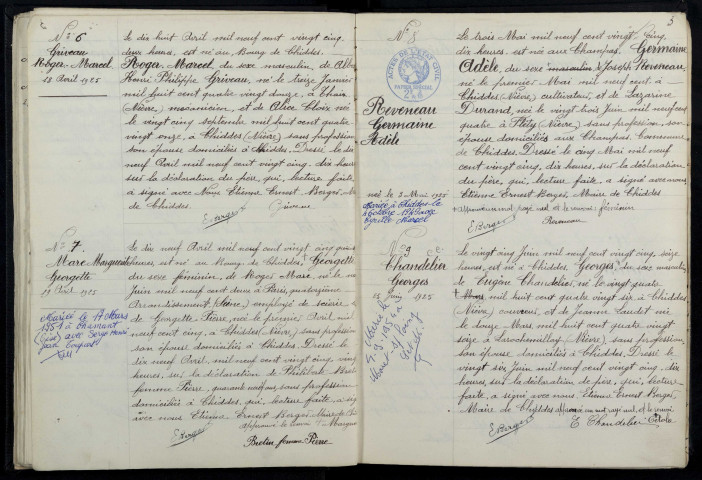 N° 6
Griveau
Roger Marcel
18 Avril 1925
Le dix huit Avril mil neuf cent vingt cinq,
deux heures, est né au Bourg de Chiddes,
Roger Marcel, du sexe masculin, de
Henri Philippe Griveau, né le treize Janvier
mil huit cent quatre vingt douze, à
(Nièvre) mécanicien, et de Alice Cloix née
le vingt cinq septembre mil huit cent quatre
vingt onze, à Chiddes (Nièvre) sans profession
son épouse domiciliés à Chiddes. Dressé le dix
neuf Avril mil neuf cent vingt cinq, dix heures
sur la déclaration du père, qui, lecture faite,
a signé avec Nous Etienne Ernest Berger,
de Chiddes.
E Berger Griveau
N° 7.
Marc Marguerite
Georgette
19 Avril 1925
Mariée le 17 Mars
1951 à Chamant
(Oise) avec Serge
Jean
Le dix neuf Avril mil neuf cent vingt cinq
heures, est né au Bourg de Chiddes, † Georgette
du sexe féminin, de Roger Marc, né le
Juin mil neuf cent deux à Paris, quatorzième
Arrondissement (Seine) employé de scierie, et
de Georgette Pierre, née le premier Avril mil
neuf cent cinq, à Chiddes (Nièvre) sans profession
son épouse domiciliés à Chiddes. Dressé le
dix neuf Avril mil neuf cent vingt cinq, vingt
heures, sur la déclaration de Philiberte
femme Pierre, quarante ans, sans profession
domiciliée à Chiddes, qui, lecture faite, a signé
avec nous Etienne Ernest Berger Maire de
approuvé le renvoi † Marguerite
E Berger
femme Pierre
5
N° 8
ACTES DE L'ETAT CIVIL
PAPIER SPECIAL
Reveneau
Germaine
Adèle
née le 3 Mai 1925
Mariée à Chiddes le
Octobre
Marcel
Le trois Mai mil neuf cent vingt cinq,
dix heures, est née aux Champs, Germaine
Adèle, du sexe masculin, de Joseph Reveneau
né le premier Mai mil neuf cent à
Chiddes (Nièvre) cultivateur, et de Lazarine
Durand, née le vingt trois Juin mil neuf cent
quatre à Fléty (Nièvre) sans profession, son
épouse domiciliés aux Champs, Commune
de Chiddes. Dressé le cinq Mai mil neuf
cent vingt cinq, dix heures, sur la déclaration
du père, qui, lecture faite, a signé avec nous
Etienne Ernest Berger, Maire de Chiddes
approuvé un mot rayé nul et le renvoi féminin
E Berger Reveneau
N° 9
Chandelier
Georges
25 1925
Le vingt cinq Juin mil neuf cent vingt cinq, seize
heures, est né à Chiddes, Georges, du sexe masculin
de Eugène Chandelier, né le vingt quatre
† mil huit cent quatre vingt six à Chiddes
(Nièvre) couvreur, et de Jeanne Laudet née
le douze Mars mil huit cent quatre vingt
seize à Larochemillay (Nièvre), sans profession,
son épouse, domiciliés à Chiddes. Dressé le
vingt six Juin mil neuf cent vingt cinq, dix
heures, sur la déclaration du père, qui, lecture
faite, a signé avec nous Etienne Ernest Berger,
Maire de Chiddes approuvé un mot rayé nul, et le renvoi
E Berger E Chandelier